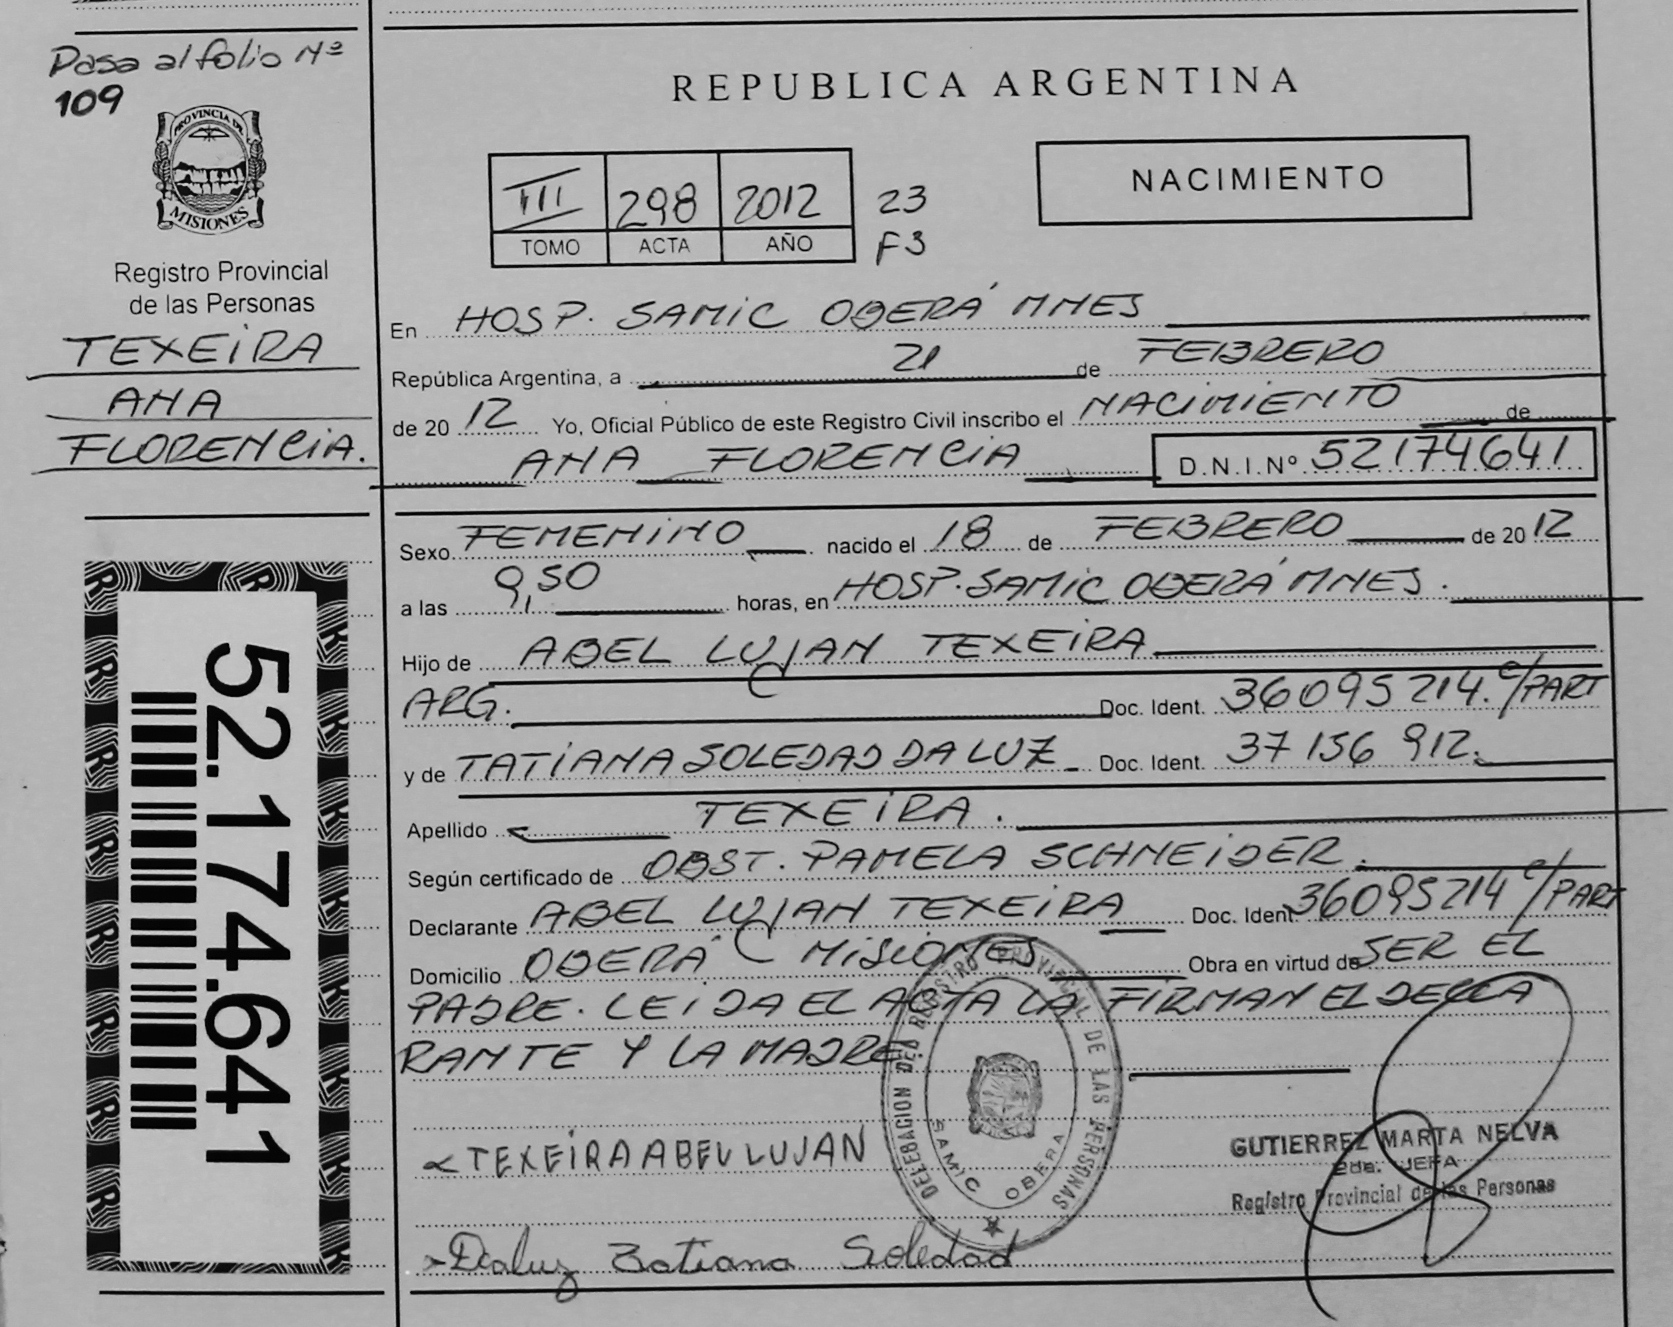 Pasa al folio Nº
109
PROVINCIA DE
MISIONES
Registro Provincial
de las Personas
TEXEIRA
ANA
FLORENCIA.
52.174.641
REPUBLICA ARGENTINA
NACIMIENTO
III 298 2012 23
TOMO ACTA AÑO F3
En HOSP. SAMIC OBERÁ MNES
República Argentina, a 21 de FEBRERO
de 2012 Yo, Oficial Público de este Registro Civil inscribo el NACIMIENTO de
ANA FLORENCIA D.N.I.Nº 52174641
Sexo FEMENINO nacido el 18 de FEBRERO de 2012
a las 9,50 horas, en HOSP. SAMIC OBERÁ MNES.
Hijo de ABEL LUJAN TEXEIRA
ARG. Doc. Ident. 36095214. C/PART
y de TATIANA SOLEDAD DA LUZ Doc. Ident. 37156912.
Apellido TEXEIRA.
Según certificado de OBST. PAMELA SCHNEIDER.
Declarante ABEL LUJAN TEXEIRA Doc. Ident 36095214 C/PART
Domicilio OBERÁ MISIONES Obra en virtud de SER EL
PADRE. LEIDA EL ACTA LA FIRMAN EL DECLA
RANTE Y LA MADRE
DELEGACION DEL REGISTRO PROVINCIAL DE LAS PERSONAS
SAMIC OBERA
GUTIERREZ MARTA NELVA
2da. JEFA
Registro Provincial de las Personas
TEXEIRA ABEL LUJAN
Daluz Tatiana Soledad